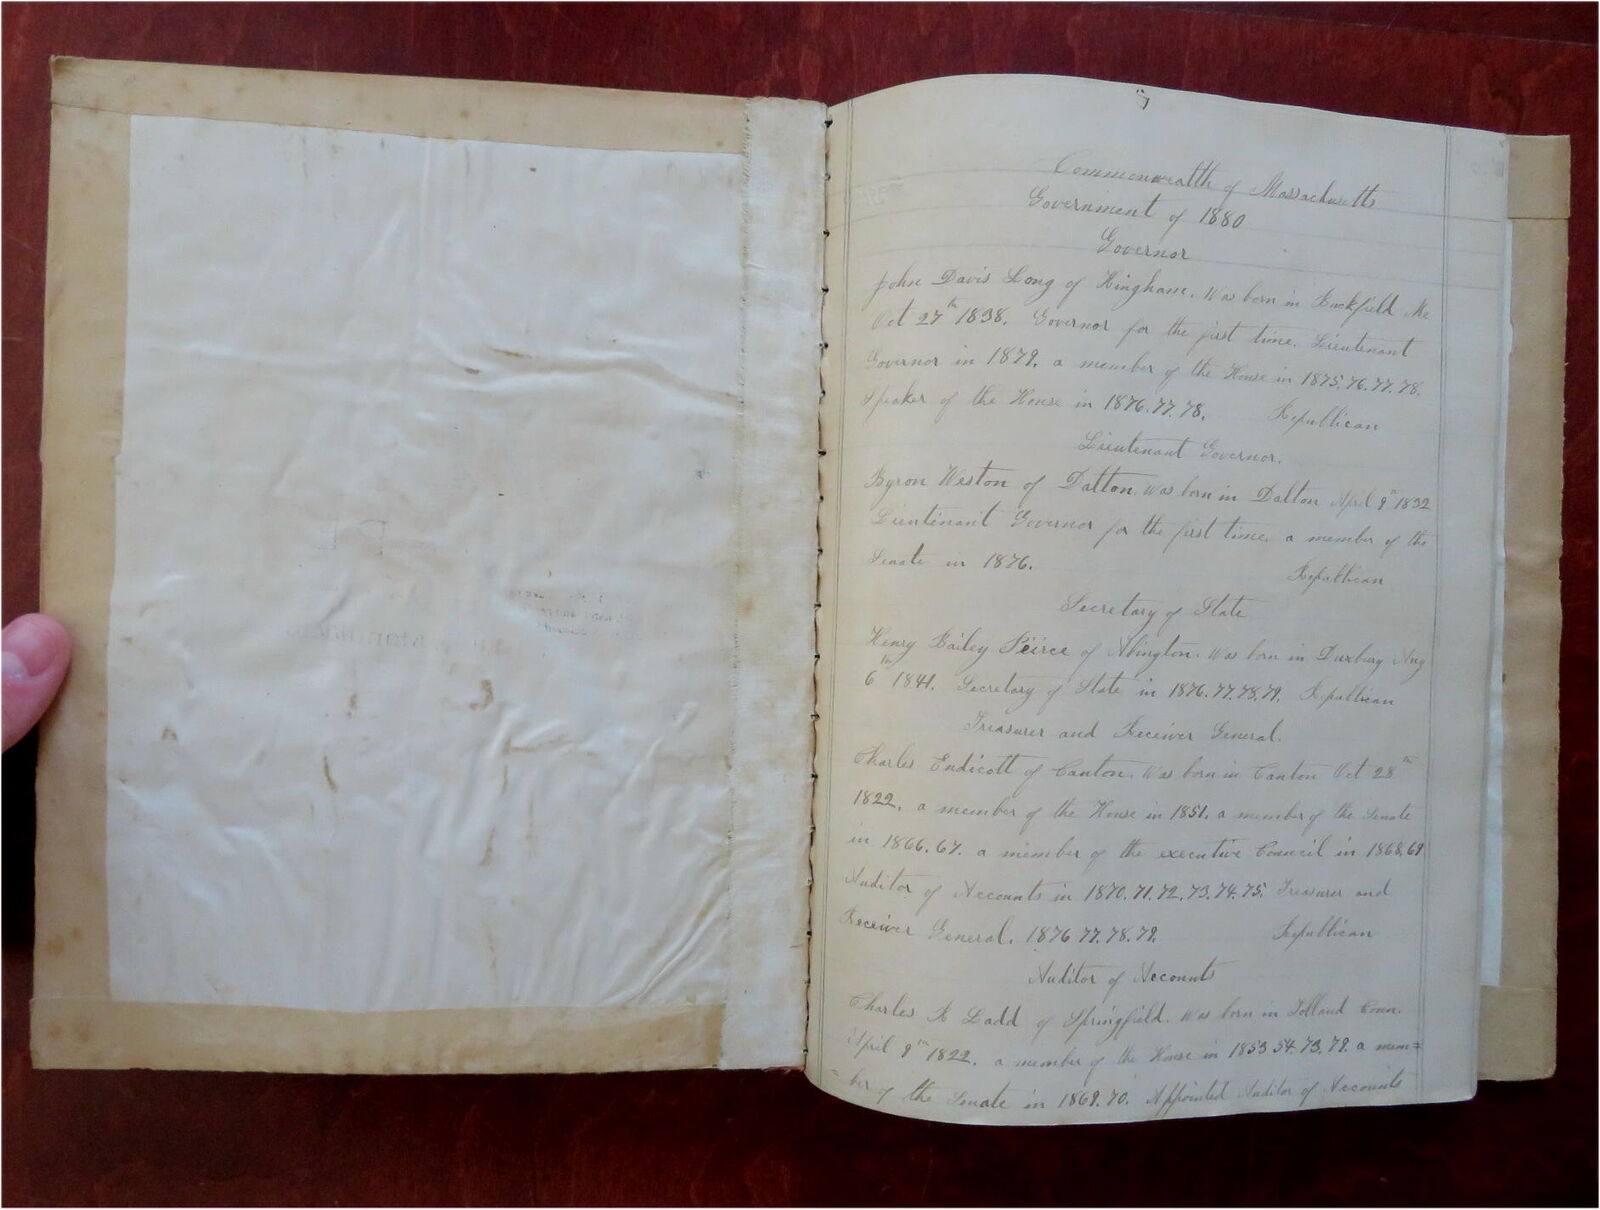 Commonwealth of Massachusetts
Government of 1880
Governor
John Davis Long of Hingham. Was born in Buckfield Me
Oct 27th 1838. Governor for the first time. Lieutenant
Governor in 1879. a member of the House in 1875.76.77.78.
Speaker of the House in 1876.77.78. Republican
Lieutenant Governor.
Byron Weston of Dalton. Was born in Dalton April 9th 1832
Lieutenant Governor for the first time. a member of the
Senate in 1876. Republican
Secretary of State
Henry Bailey Peirce of Abington. Was born in Duxbury Aug
6th 1841. Secretary of State in 1876.77.78.79. Republican
Treasurer and Receiver General.
Charles Endicott of Canton. Was born in Canton Oct 28th
1822. a member of the House in 1851. a member of the Senate
in 1866.67. a member of the executive Council in 1868.69
Auditor of Accounts in 1870.71.72.73.74.75. Treasurer and
Receiver General. 1876 77.78.79. Republican
Auditor of Accounts
Charles R Ladd of Springfield. Was born in Tolland Conn.
April 9th 1822. a member of the House in 1853 54.73.79. a mem=
=ber of the Senate in 1869.70. Appointed Auditor of Accounts